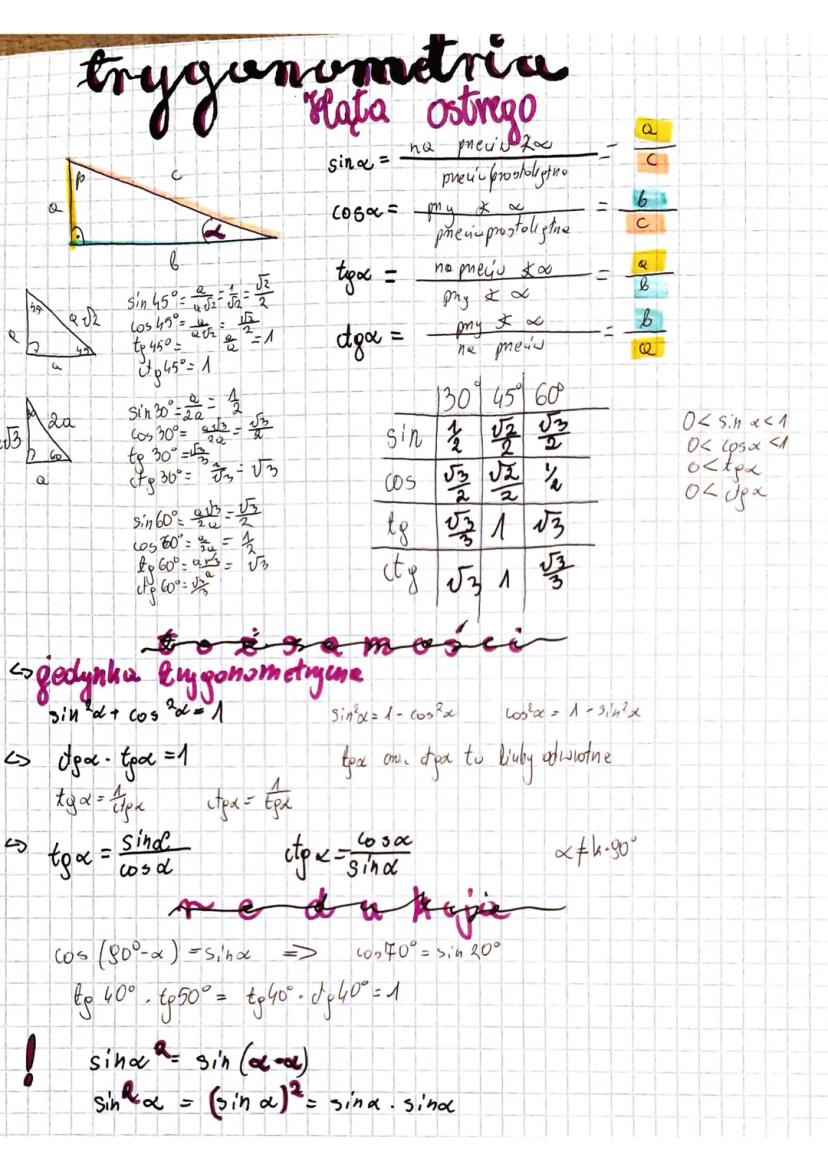 trygonometria
kąta ostrego
sinα = na przeciw ∢α / przeciwprostokątna = a / c
cosα = przy ∢ α / przeciwprostokątna = b / c
tgα = na przeciw ∢α / przy ∢ α = a / b
ctgα = przy ∢ α / na przeciw = b / a
a β c α b
45° a a√2 45° a
sin 45° = a/a√2 = 1/√2 = √2/2
cos 45° = a/a√2 = √2/2
tg 45° = a/a = 1
ctg 45° = 1
2a a√3 60 a
sin 30° = a/2a = 1/2
cos 30° = a√3/2a = √3/2
tg 30° = √3/3
ctg 30° = √3 = √3
sin 60° = a√3/2a = √3/2
cos 60° = a/2a = 1/2
tg 60° = a√3/a = √3
ctg 60° = √3/3
30° 45° 60°
sin 1/2 √2/2 √3/2
cos √3/2 √2/2 1/2
tg √3/3 1 √3
ctg √3 1 √3/3
0 < sin α < 1
0 < cosα < 1
0 < tgα
0 < ctgα
tożsamości
↪ jedynka trygonometryczna
sin²α + cos²α = 1 sin²α = 1 - cos²α cos²α = 1 - sin²α
↪ ctgα · tgα = 1 tgα oraz ctgα to liczby odwrotne
tgα = 1/ctgα ctgα = 1/tgα
↪ tgα = sinα/cosα ctgα = cosα/sinα α ≠ k·90°
redukcja
cos (90°-α) = sinα => cos70° = sin 20°
tg 40° · tg50° = tg40° · ctg40° = 1
! sinα² = sin (α·α)
sin²α = (sin α)² = sinα · sinα